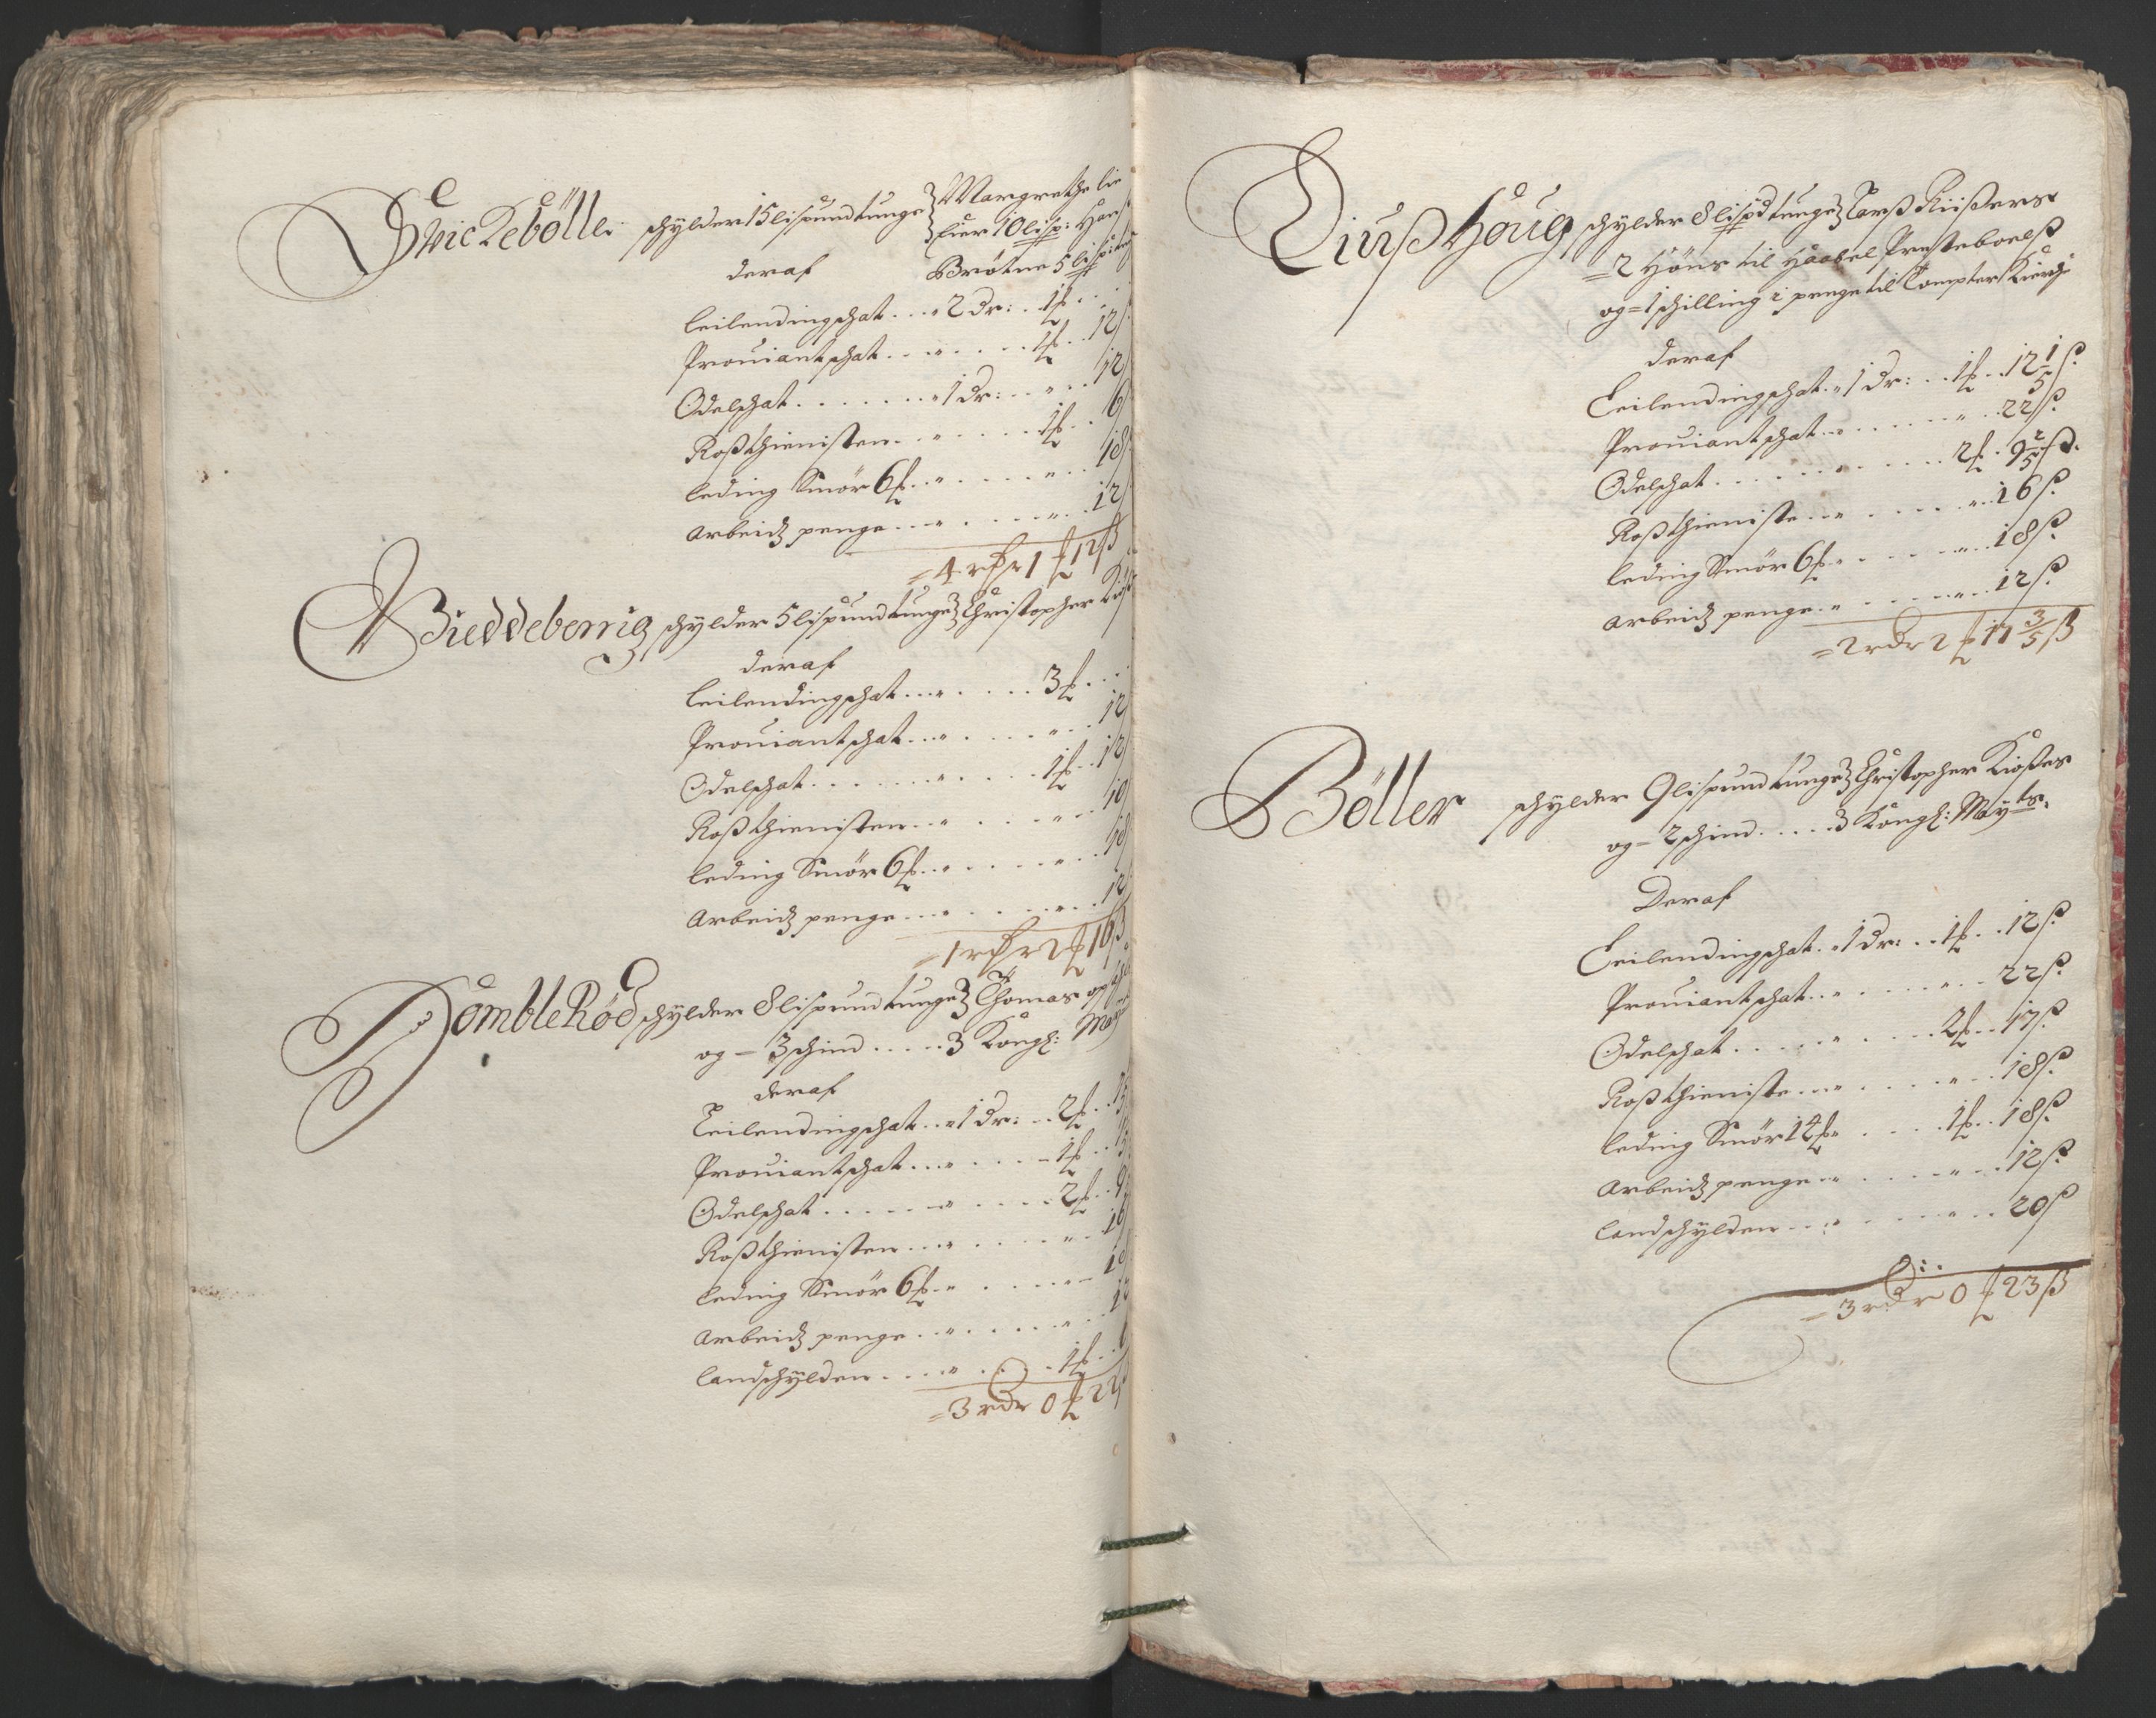 Swickebölle schylder 15 lispund tunge Margrethe lie
Eier 10 lisp: Hans
deraf Brötne 5 lispund
leilendingschat . . . 2 dr: . 1 ₰ . .
Prouiantschat . . . . . . 1 ₰ . . 12
Odelschat . . . . . . 1 dr: . . . 12
Roßthienisten . . . . . 1 ₰ . . 6
leding Smör 6 ₰ . . . . . . 18
arbeidz penge . . . . . . 12
= 4 rdr 1 ₰ 12 ß
Bieddeberrig schylder 5 lispund tunge Christopher
deraf
leilendingschat . . . . . 3 ₰ . .
Prouiantschat . . . . . . . 12
Odelschat . . . . . . . 1 ₰ . . 12
Roßthienisten . . . . . . 10
leding Smör 6 ₰ . . . . . . 18
Arbeidz penge . . . . . . 12
= 1 rdr 2 ₰ 16 ß
Hombleröd schylder 8 lispund tunge Thomas
og – 3 schind . . . . . 3 Kongl: May
deraf
Leilendingschat . . 1 dr: . . 2 ₰ . .
Prouiantschat . . . . . . 1 ₰ . .
Odelschat . . . . . . . . 2 ₰ . . 9
Roßthienisten . . . . . . . 16
leding Smör 6 ₰ . . . . . . 18
arbeidz penge . . . . . . . 12
landschylden . . . . . . 1 ₰ . . 6
= 3 rdr 0 ₰ 22
Diuß houg schylder 8 lispd tunge Larß Riißers
= 2 Höns til Haabel Presteboelß
og = 1 schilling i penge til Tompter Kierch
deraf
Leilendingschat . 1 dr: . . 1 ₰ . . 12 1/5 ß.
Prouiantschat . . . . . . . . 22 ß.
Odelschat . . . . . . . . 2 ₰ . 9 2/5 ß.
Roßthieniste . . . . . . . . 16 ß.
leding Smör 6 ₰ . . . . . . . 18 ß.
arbeidz penge . . . . . . . 12 ß.
= 2 rdr 2 ₰ 17 3/5 ß
Böller schylder 9 lispund tunge Christopher Kioßes
og – 2 schind . . . . . 3 Kongl: Mayts.
Deraf
Leilendingschat . 1 dr: . . 1 ₰ . . 12 ß.
Prouiantschat . . . . . . . . 22 ß.
Odelschat . . . . . . . . 2 ₰ . . 17 ß.
Roßthieniste . . . . . . . . 18 ß.
leding Smör 12 ₰ . . . . . 1 ₰ . . 18 ß.
arbeidz penge . . . . . . . . 12 ß.
landschylden . . . . . . . . 20 ß
= 3 rdr 0 ₰ 23 ß